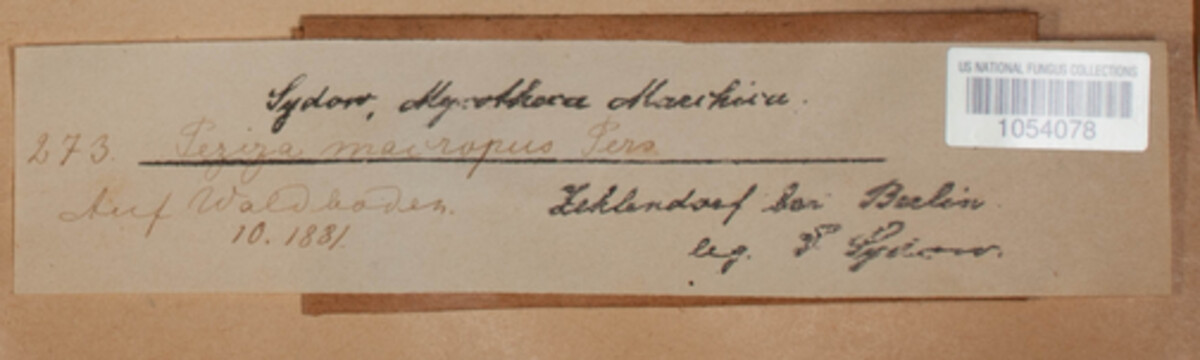 Sydow, Mycotheca Marchica.
US NATIONAL FUNGUS COLLECTIONS
1054078
273. Peziza macropus Pers
Auf Waldboden.
10. 1881
Zehlendorf bei Berlin
leg. P Sydow.